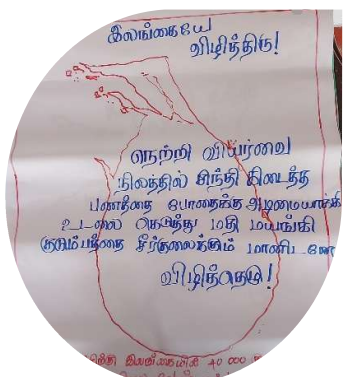 இலங்கையே
விழித்திரு!
நெற்றி வியர்வை
நிலத்தில் சிந்தி கிடைத்த
பணத்தை போதைக்கு அடிமையாக்கி
உடலை கெடுத்து மதி மயங்கி
குடும்பத்தை சீர்குலைக்கும் மானிடனே
விழித்தெழு!
40 000